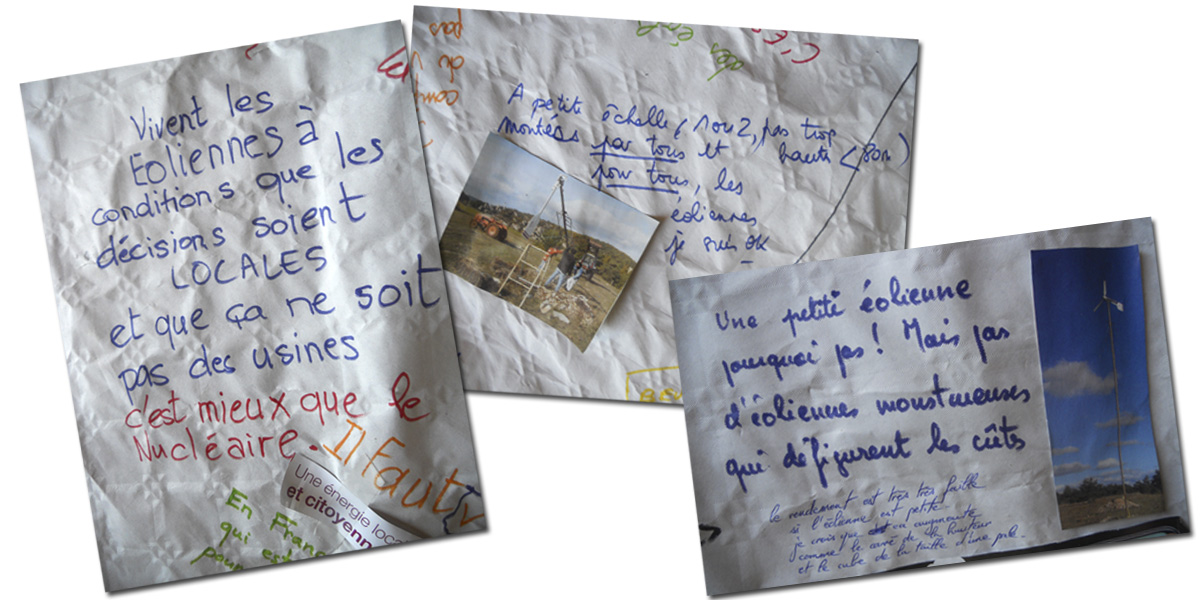 Vivent les
Eoliennes à
conditions que les
décisions soient
LOCALES
et que ça ne soit
pas des usines
c'est mieux que le
Nucléaire.
Il Faut
Une énergie loca
et citoyenn
En Franc
qui est
pour
pas
des
A petite échelle (1 ou 2, pas trop
haute (80m)
montées par tous et
pour tous, les
éoliennes
je suis OK
Une petite éolienne
pourquoi pas ! Mais pas
d'éoliennes monstrueuses
qui défigurent les crêtes
le rendement est très très faible
si l'éolienne est petite
je crois que ça augmente
comme le carré de la hauteur
et le cube de la taille d'une pale.